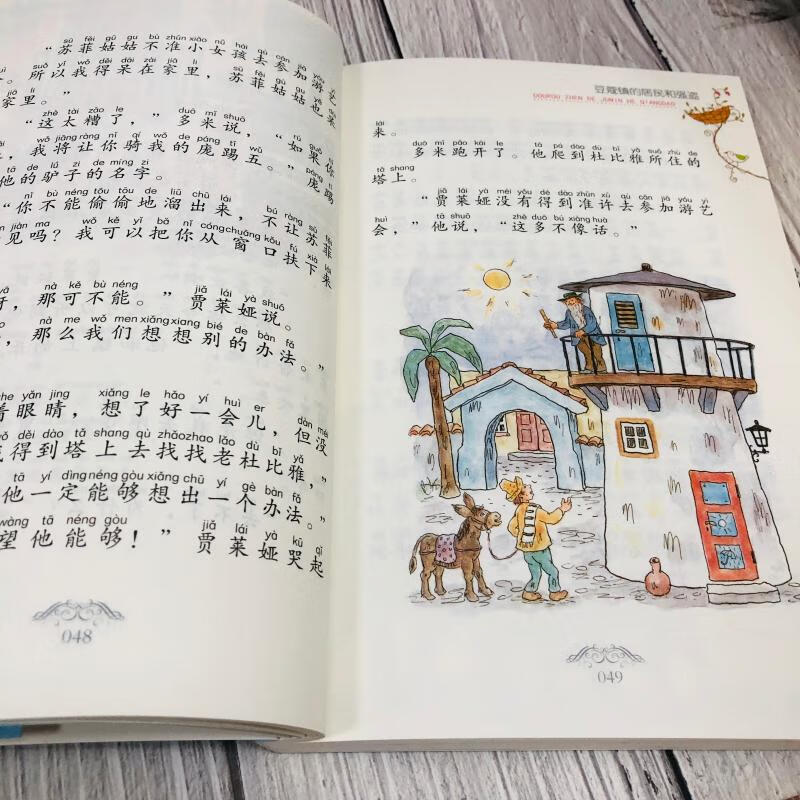 sū fēi gū gu bù zhǔn xiǎo nǚ hái qù cān jiā yóu yì
“苏菲姑姑不准小女孩去参加游艺
yǐ wǒ děi dāi zài jiā lǐ sū fēi gū gu yě
。所以我得呆在家里，苏菲姑姑也呆
家里。”
zhè tài zāo le duō mǐ shuō rú guǒ nǐ
“这太糟了，”多米说，“如果你
wǒ jiāng ràng nǐ qí wǒ de páng tī wǔ páng tī
我将让你骑我的庞踢五。”庞踢
tā de lǘ zi de míng zi
他的驴子的名字。
nǐ bù néng tōu tōu de liū chū lái bú ràng sū fēi
“你不能偷偷地溜出来，不让苏菲
wǒ kě yǐ bǎ nǐ cóng chuāng kǒu fú xià lái
见吗？我可以把你从窗口扶下来
nà kě bù néng jiǎ lái yà shuō
，那可不能。”贾莱娅说。
nà me wǒ men xiǎng xiang bié de bàn fǎ
，那么我们想想别的办法。”
zhe yǎn jing xiǎng le hǎo yí huì er dàn méi
着眼睛，想了好一会儿，但没
děi dào tǎ shang qù zhǎo zhao lǎo dù bǐ yǎ
得到塔上去找找老杜比雅，”
tā yí dìng néng gòu xiǎng chū yí gè bàn fǎ
他一定能够想出一个办法。”
wàng tā néng gòu jiǎ lái yà kū qǐ
望他能够！”贾莱娅哭起
048
豆蔻镇的居民和强盗
DOUKOU ZHEN DE JUMIN HE QIANGDAO
lái
来。
duō mǐ pǎo kāi le tā pá dào dù bǐ yǎ suǒ zhù de
多米跑开了。他爬到杜比雅所住的
tǎ shang
塔上。
jiǎ lái yà méi yǒu dé dào zhǔn xǔ qù cān jiā yóu yì
“贾莱娅没有得到准许去参加游艺
huì tā shuō zhè duō bú xiàng huà
会，”他说，“这多不像话。”
049